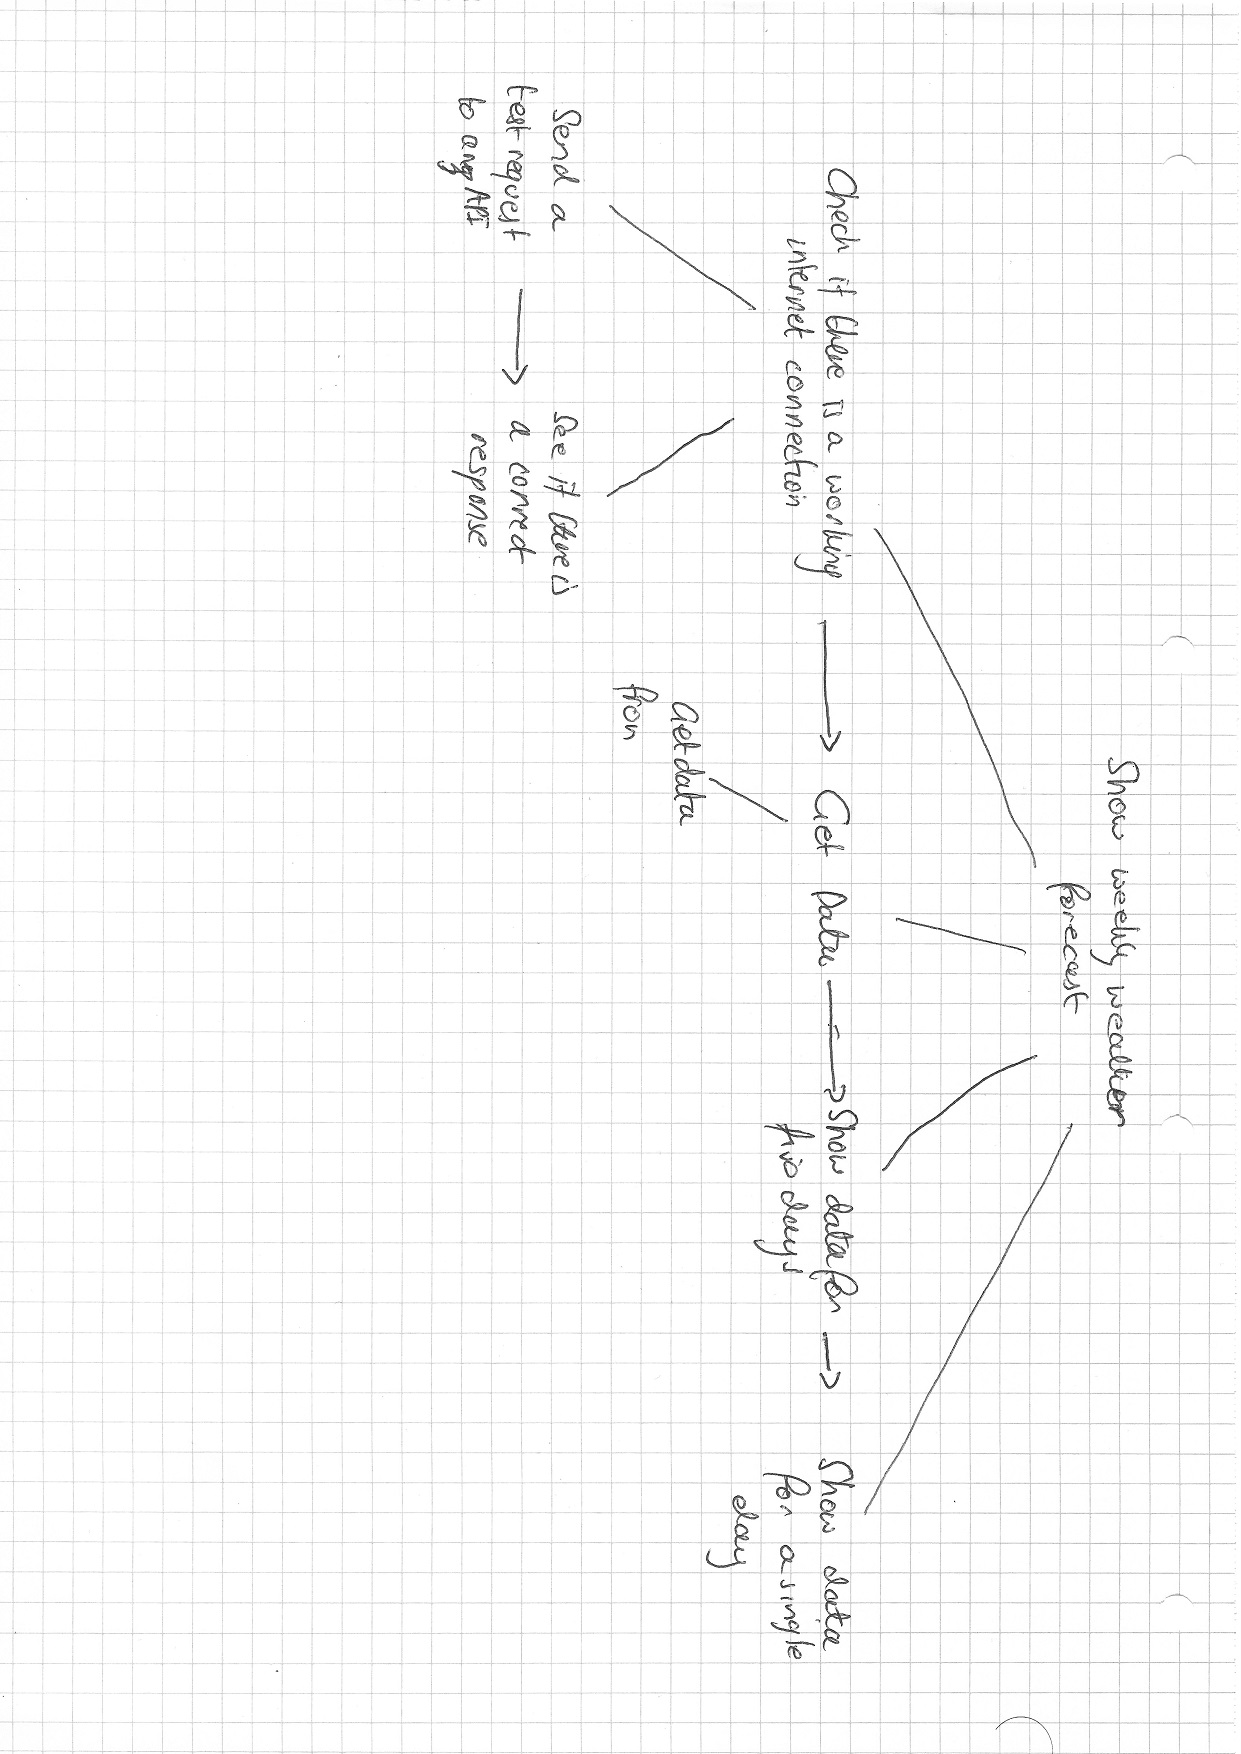 Show weekly weather
forecast
Check if there is a working
internet connection
Get Data
Show data for
five days
Show data
for a single
day
Send a
test request
to any API
See if there is
a correct
response
Get data
from